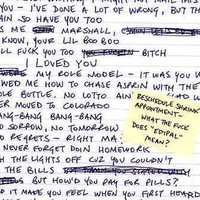 YOU – I'VE DONE A LOT OF WRONG, BUT TH
AIN SO HAVE YOU TOO
MARSHALL,
KNOW, YOUR LIL BOO BOO
LL FUCK YOU TOO BITCH
I LOVED YOU
MY ROLE MODEL – IT WAS YOU W
WED ME HOW TO CHASE ASPRIN WITH THE
OLE BOTTLE. NO LOTTO AIN
ER MOVED TO COLORADO
ANG-BANG BANG-BANG
O SORROW, NO TOMORROW
O REGRETS – RIGHT MA
NEVER FORGET DOIN HOMEWORK
H THE LIGHTS OFF CUZ YOU COULDN'T
THE BILLS
BUT HOW'D YOU PAY FOR PILLS?
IT MAKE YOU FEEL WHEN YOU FIRST HEARD
RESCHEDULE SHRINK
APPOINTMENT –
WHAT THE FUCK
DOES EDIPAL
MEAN?